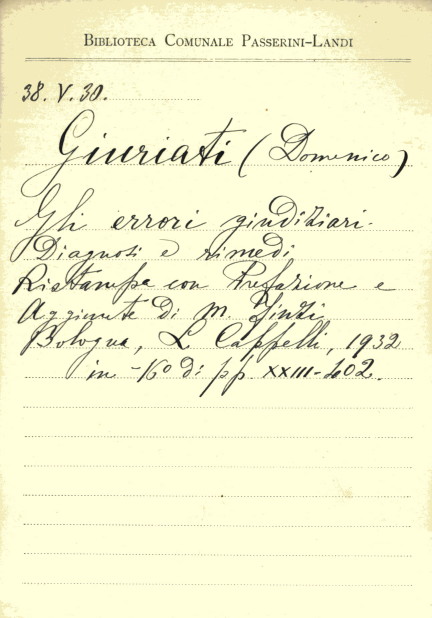 BIBLIOTECA COMUNALE PASSERINI-LANDI
38. V. 30.
Giuriati (Domenico)
Gli errori giudiziari.
Diagnosi e rimedi
Ristampa con Prefazione e
Aggiunte di M.
Bologna, L. Cappelli, 1932
in -16º di pp. XXIII-402.